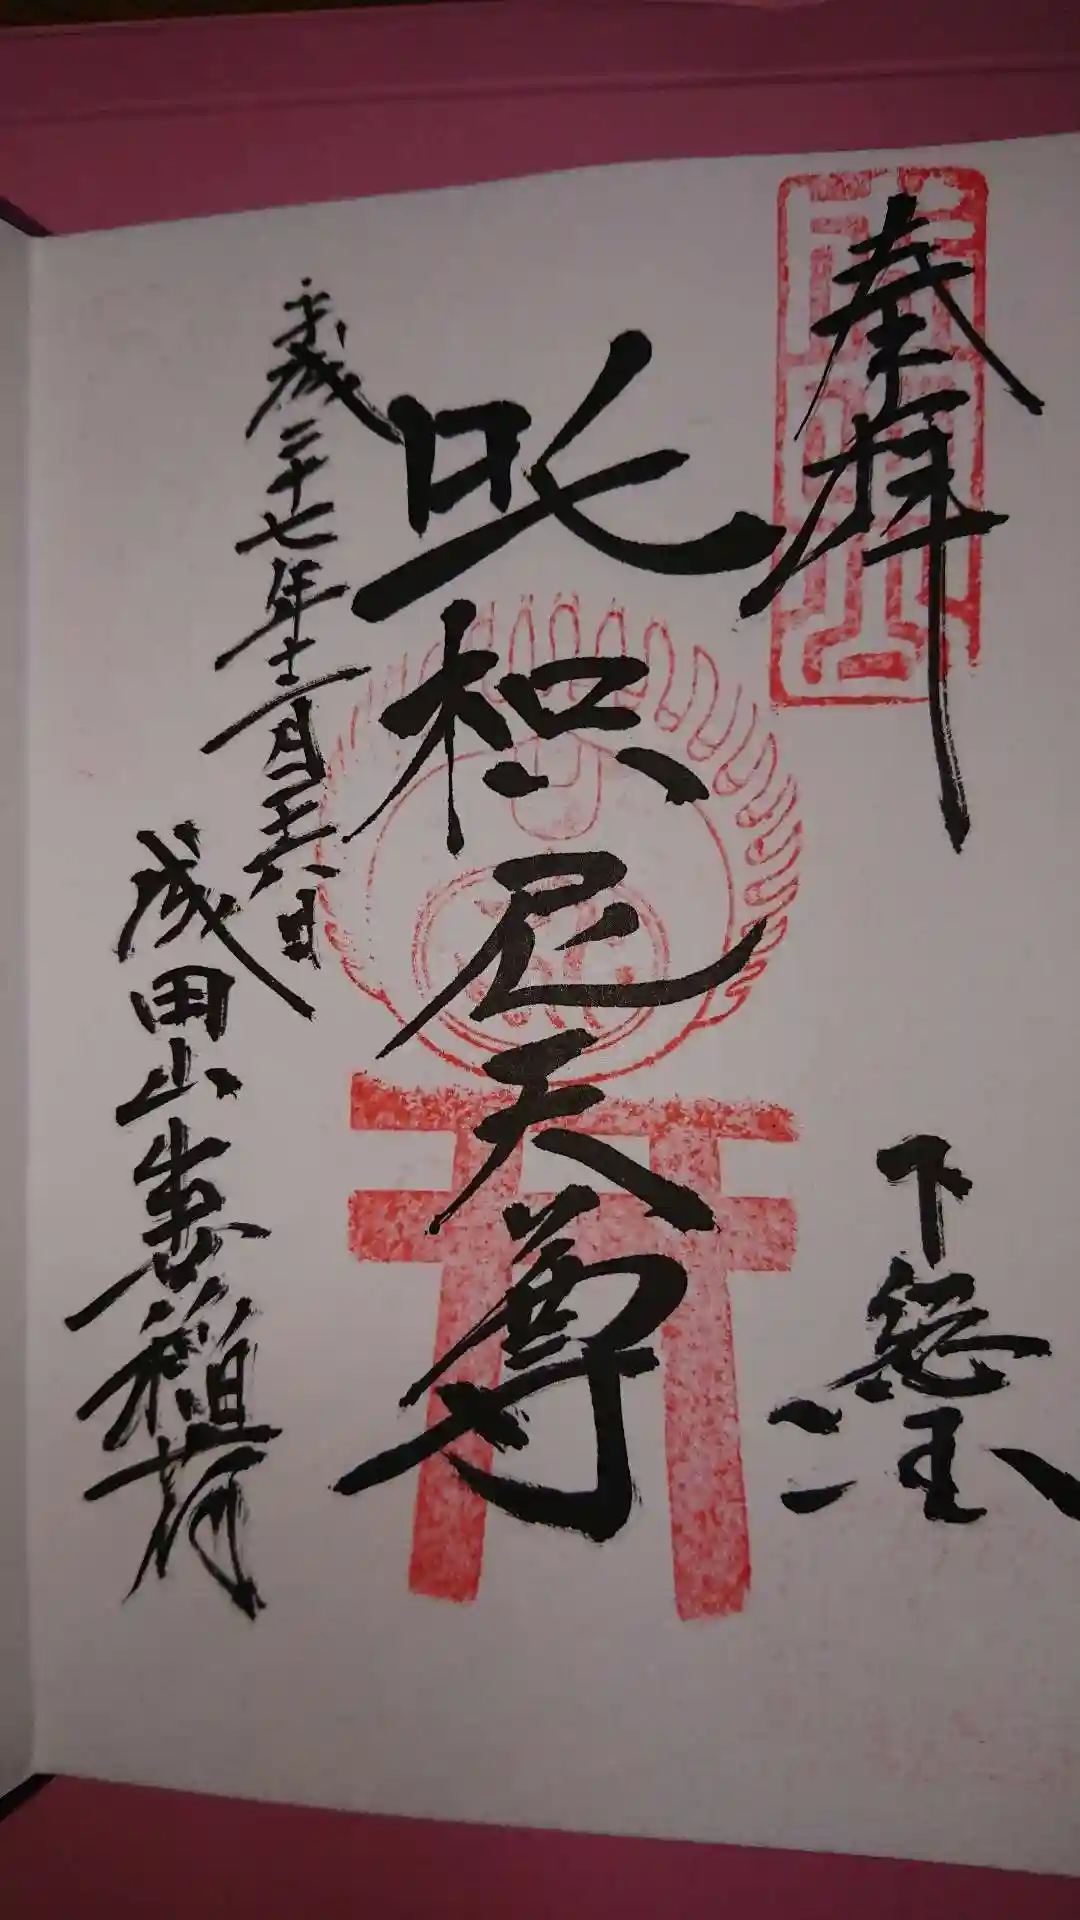 奉拝
下総国
吒枳尼天尊
平成二十七年十二月二十六日
成田山出世稲荷